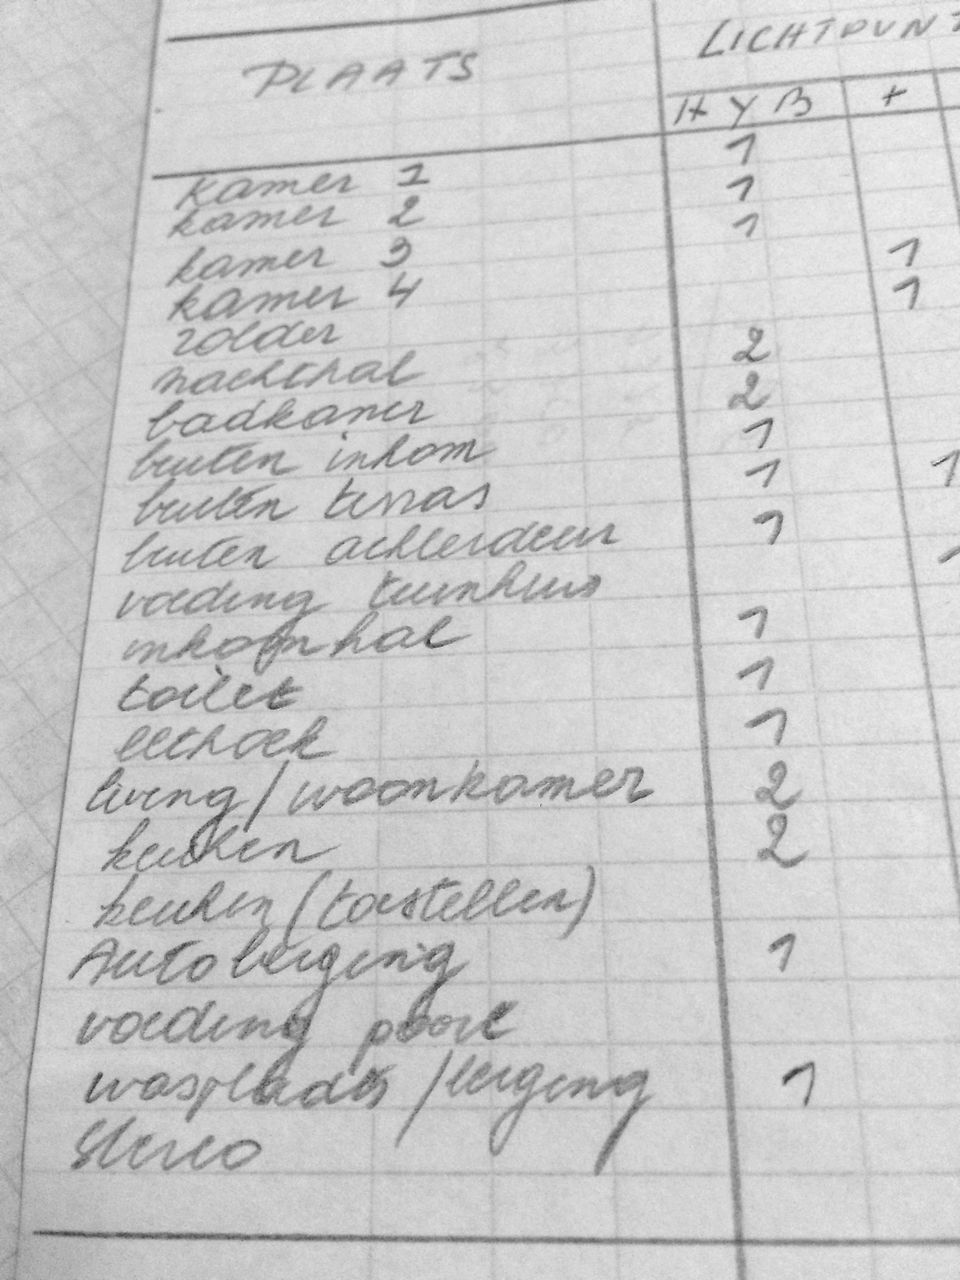 PLAATS LICHTPUNT
H Y B +
kamer 1 1
kamer 2 1
kamer 3 1
kamer 4 1
zolder 1
nachthal 2
badkamer 2
buiten inkom 1
buiten terras 1 1
buiten achterdeur 1
voeding tuinhuis 1
inkomhal 1
toilet 1
eethoek 1
living/woonkamer 2
keuken 2
keuken (toestellen)
Autoberging 1
voeding poort
wasplaats/berging 1
Stereo